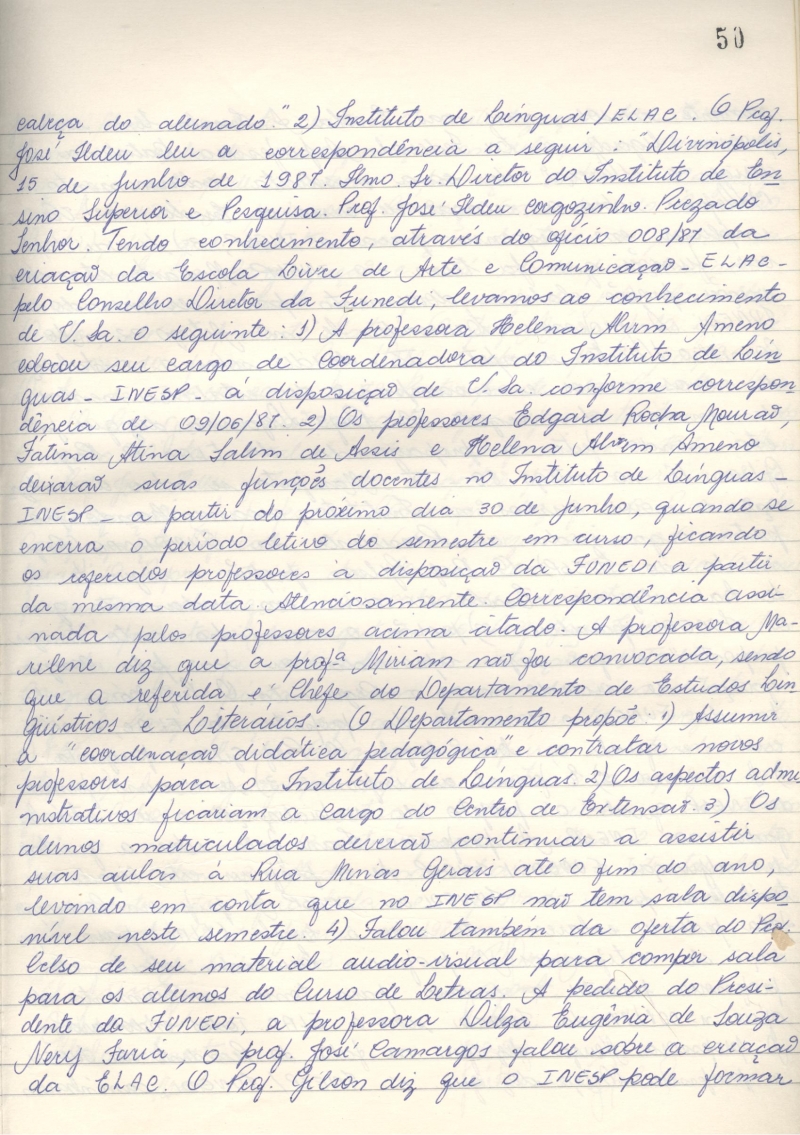 50
cabeça do alunado." 2) Instituto de Línguas / ELAC. O Prof.
José Ildeu leu a correspondência a seguir: "Divinópolis,
15 de junho de 1987. Ilmo. Sr. Diretor do Instituto de En-
sino Superior e Pesquisa. Prof. José Ildeu Gorgozinho. Prezado
Senhor. Tendo conhecimento, através do ofício 008/87 da
criação da Escola Livre de Arte e Comunicação - ELAC -
pelo Conselho Diretor da Funedi, levamos ao conhecimento
de V. Sa. o seguinte: 1) A professora Helena Alvim Ameno
colocou seu cargo de Coordenadora do Instituto de Lín-
guas - INESP - à disposição de V. Sa. conforme correspon-
dência de 09/06/87. 2) Os professores Edgard Rocha Mourão,
Fatima Salim de Assis e Helena Alvim Ameno
deixarão suas funções docentes no Instituto de Línguas -
INESP - a partir do próximo dia 30 de junho, quando se
encerra o período letivo do semestre em curso, ficando
os referidos professores à disposição da FUNEDI a partir
da mesma data. Atenciosamente. Correspondência assi-
nada pelos professores acima citado. A professora Ma-
rilene diz que a profª Miriam não foi convocada, sendo
que a referida é Chefe do Departamento de Estudos Lin-
güísticos e Literários. O Departamento propõe: 1) Assumir
a "coordenação didática pedagógica" e contratar novos
professores para o Instituto de Línguas. 2) Os aspectos admi
nistrativos ficariam a cargo do Centro de Extensão. 3) Os
alunos matriculados deverão continuar a assistir
suas aulas à Rua Minas Gerais até o fim do ano,
levando em conta que no INESP não tem sala dispo-
nível neste semestre. 4) Falou também da oferta do Prof.
Celso de seu material audio-visual para compor sala
para os alunos do Curso de Letras. A pedido do Presi-
dente da FUNEDI, a professora Dilza Eugênia de Souza
Nery Faria, o prof. José Camargos falou sobre a criação
da ELAC. O Prof. Gilson diz que o INESP pode formar